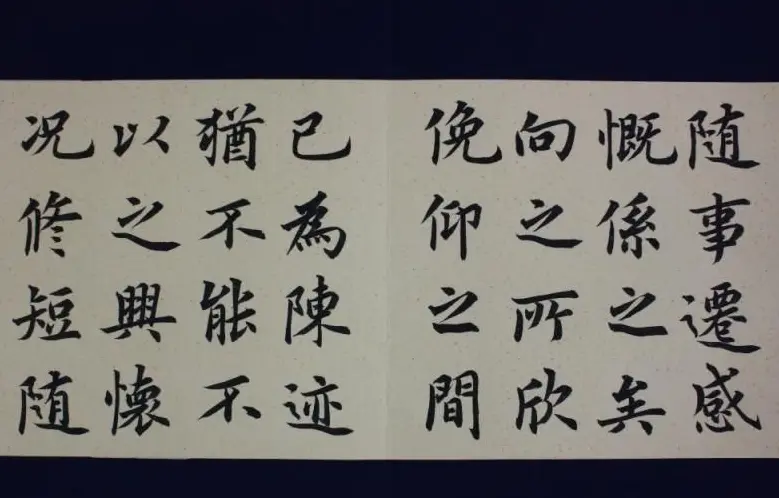 随事遷感
慨係之矣
向之所欣
俛仰之間
已為陳迹
猶不能不
以之興懷
况脩短随